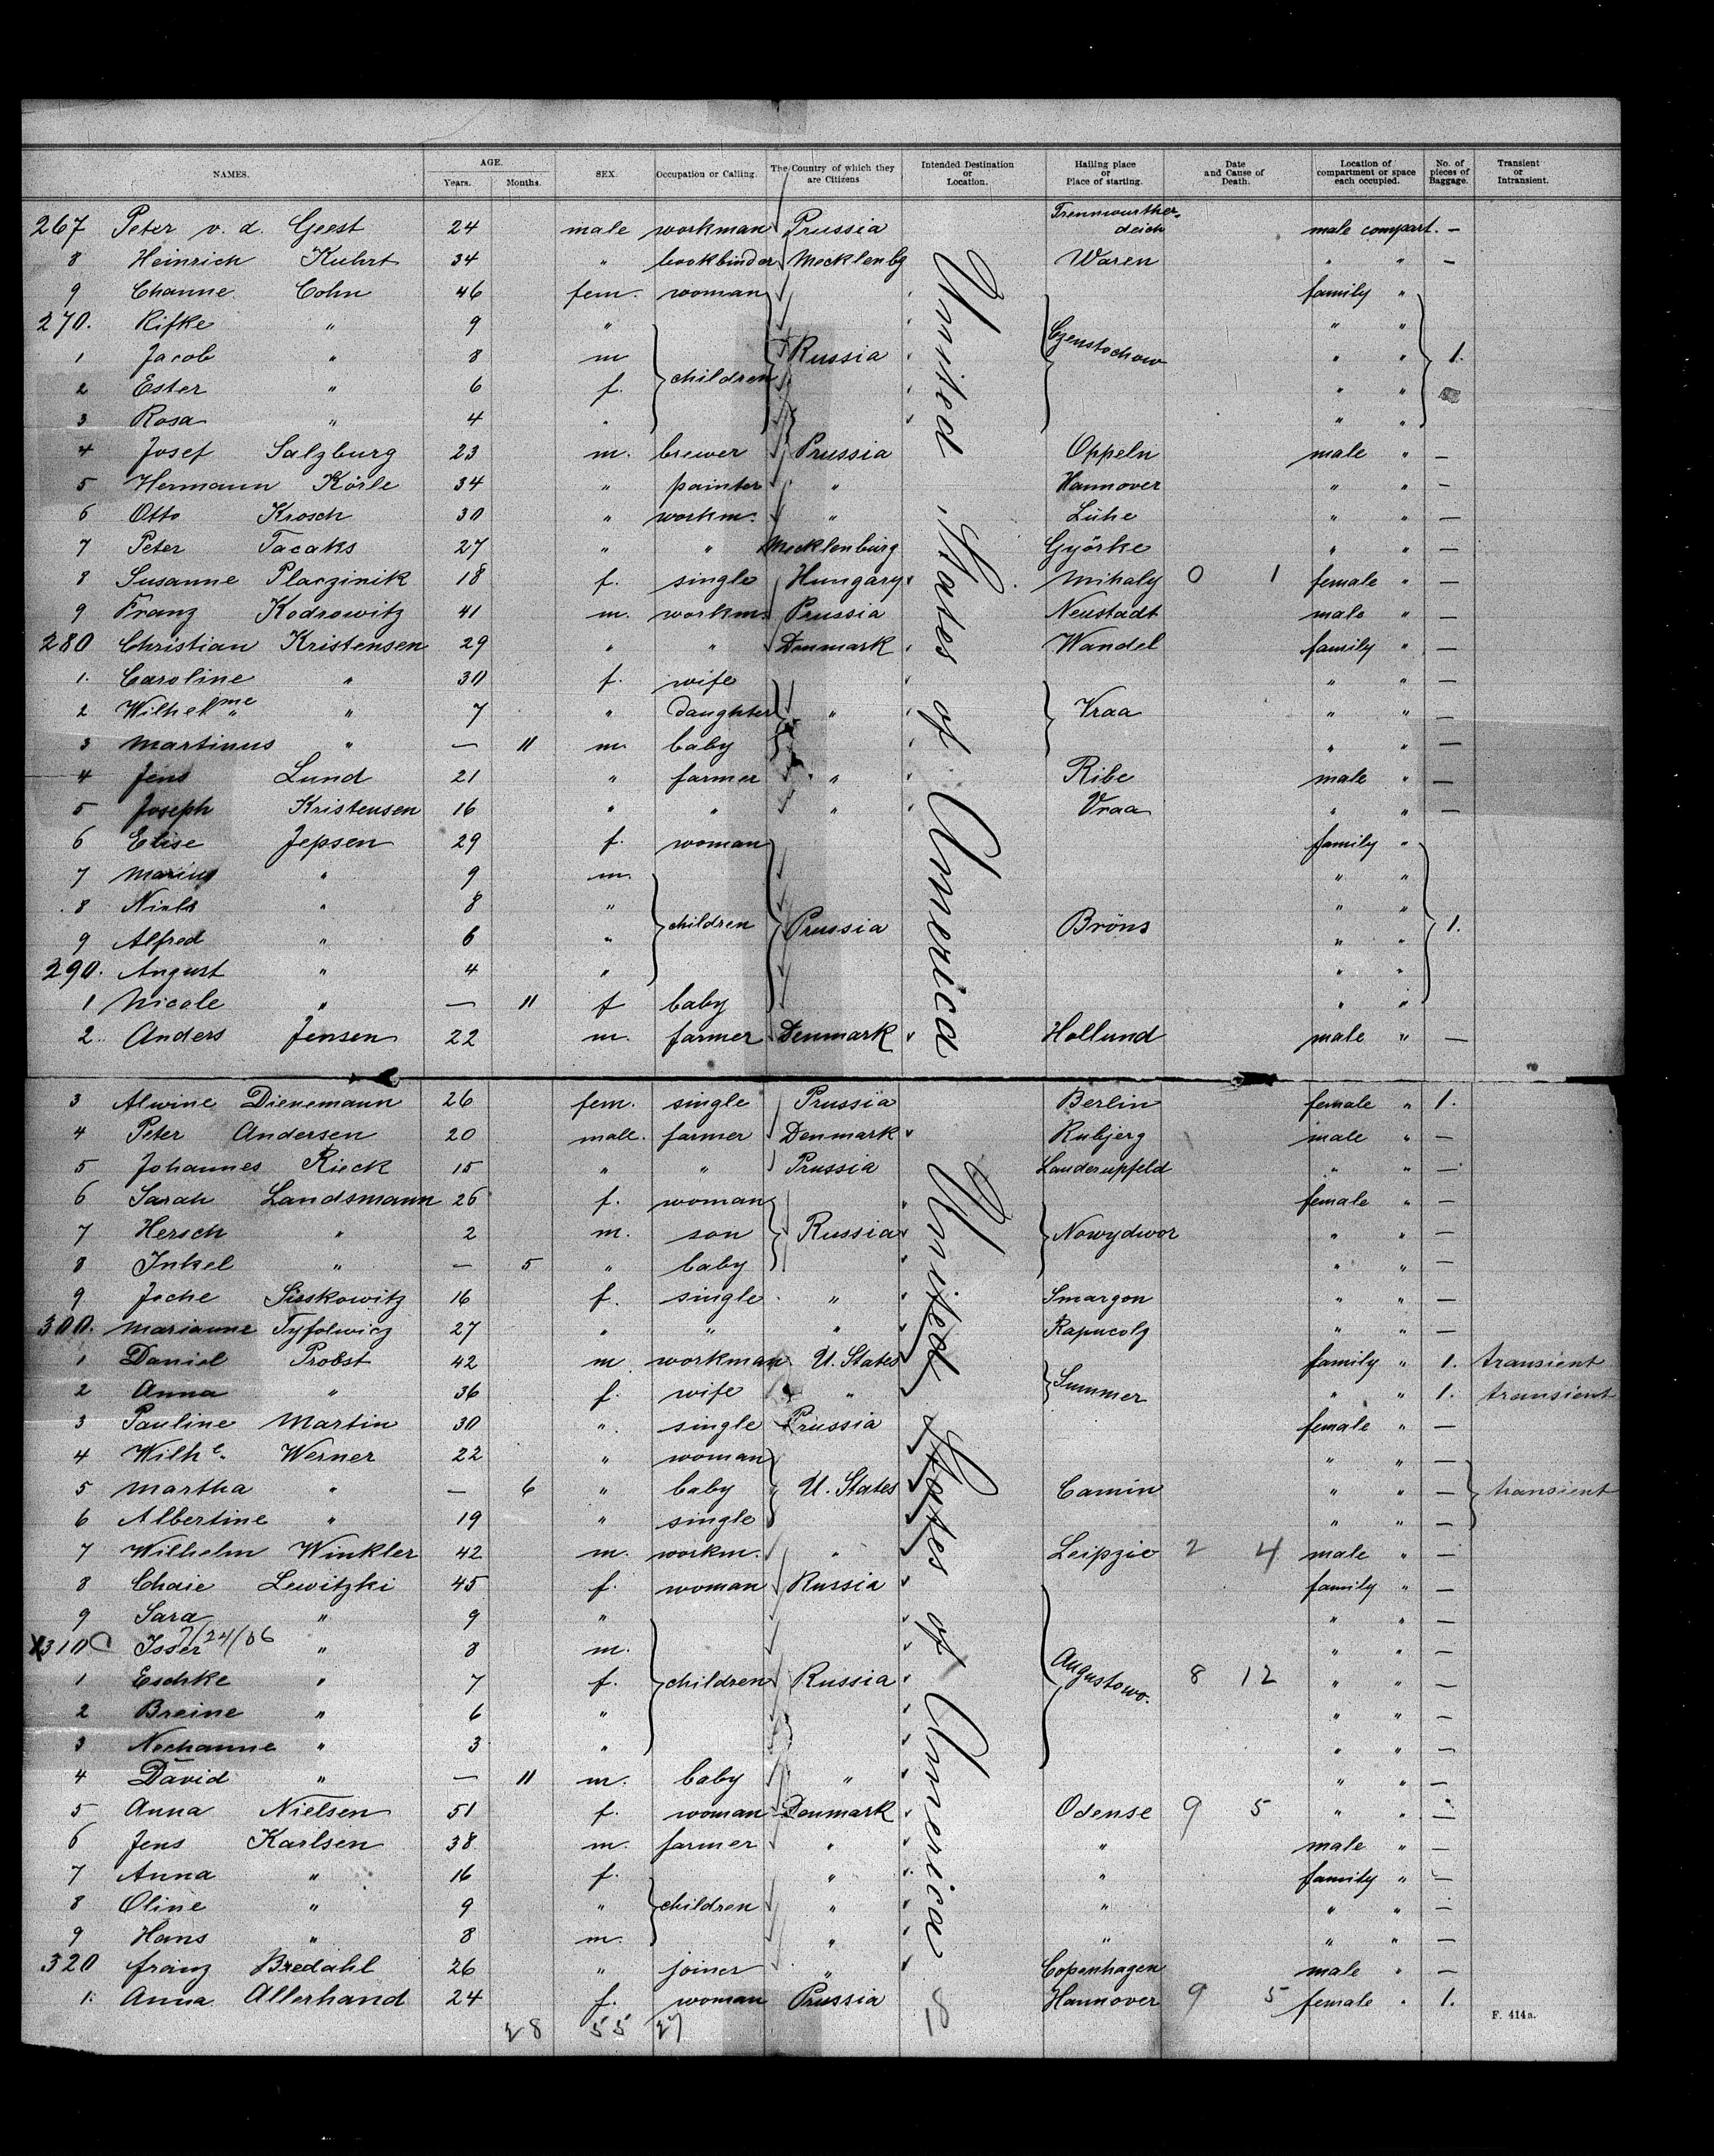 NAMES. AGE. Years. Months. SEX. Occupation or Calling. The Country of which they are Citizens Intended Destination or Location. Hailing place or Place of starting. Date and Cause of Death. Location of compartment or space each occupied. No. of pieces of Baggage. Transient or Intransient.
267 Peter v. d. Geest 24 male workman Prussia Trennwurther-deich male compart. —
8 Heinrich Kuhrt 34 " bookbinder Mecklenbg Waren " " —
9 Channe Cohn 46 fem. woman family "
270. Rifke " 9 " " "
1 Jacob " 8 m children Russia Czenstochow " " 1.
2 Ester " 6 f. " "
3 Rosa " 4 " " "
4 Josef Salzburg 23 m. brewer Prussia Oppeln male " —
5 Hermann Körle 34 " painter " Hannover " " —
6 Otto Krosch 30 " workm. " Lühe " " —
7 Peter Tacaks 27 " " Mecklenburg Györke " " —
8 Susanne Placzinik 18 f. single Hungary Mihaly 0 1 female " —
9 Franz Kodrowitz 41 m. workm. Prussia Neustadt male " —
280 Christian Kristensen 29 " " Denmark Wandel family " —
1. Caroline " 30 f. wife " " —
2 Wilhelme " 7 " daughter " Vraa " " —
3 Martinus " — 11 m. baby " " —
4 Jens Lund 21 " farmer " Ribe male " —
5 Joseph Kristensen 16 " " " Vraa " " —
6 Elise Jepsen 29 f. woman family "
7 Marius " 9 m. " "
8 Niels " 8 " children " "
9 Alfred " 6 " Prussia Bröns " " 1.
290. August " 4 " " "
1 Nicole " — 11 f baby " "
2. Anders Jensen 22 m. farmer Denmark Hollund male " —
United States of America
3 Alwine Dienemann 26 fem. single Prussia Berlin female " 1.
4 Peter Andersen 20 male. farmer Denmark Rubjerg male " —
5 Johannes Rieck 15 " " Prussia Landerupfeld " " —
6 Sarah Landsmann 26 f. woman female " —
7 Hersch " 2 m. son Russia Nowydwor " " —
8 Inkel " — 5 " baby " " —
9 Joche Sisskowitz 16 f. single " Smargon " " —
300. Marianne Tyfolwicz 27 " " " " " —
1 Daniel Probst 42 m workman U. States Summer family " 1. transient
2 Anna " 36 f. wife " " " 1. transient
3 Pauline Martin 30 " single Prussia female " —
4 Wilhe. Werner 22 " woman " " —
5 Martha " — 6 " baby U. States Camin " " — transient
6 Albertine " 19 " single " " —
7 Wilhelm Winkler 42 m. workm. " Leipzic 2 4 male " —
8 Chaie Lewitzki 45 f. woman Russia family " —
9 Sara " 9 " " " —
X310 C Isser 7/24/06 " 8 m. " " —
1 Eschke " 7 f. children Russia Augustowo. 8 12 " " —
2 Breine " 6 " " " —
3 Nechanne " 3 " " " —
4 David " — 11 m. baby " " " —
5 Anna Nielsen 51 f. woman Denmark Odense 9 5 " " —
6 Jens Karlsen 38 m. farmer " " male " —
7 Anna " 16 f. " " family " —
8 Oline " 9 " children " " " " —
9 Hans " 8 m. " " " " —
320 Franz Bredahl 26 " joiner " Copenhagen male " —
1. Anna Allerhand 24 f. woman Prussia Hannover 9 5 female " 1.
United States of America
28 55 27
F. 414a.